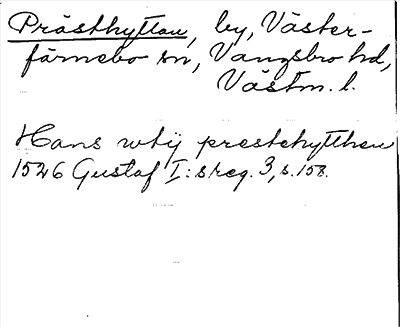 Prästhyttan, by, Väster-
färnebo sn, Vangsbro hd,
Västm. l.
Hans wtij prestehytthen
1526 Gustaf I:s reg. 3, s. 158.